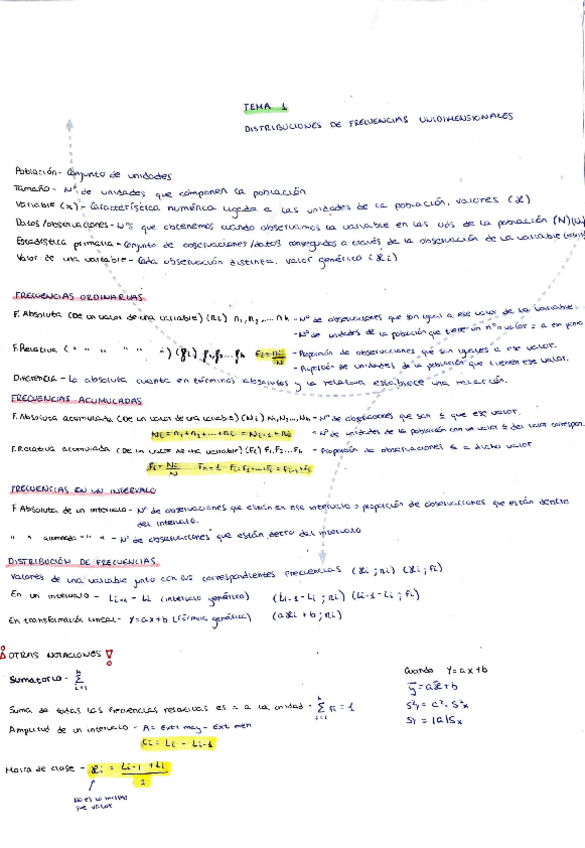 TEMA 1
DISTRIBUCIONES DE FRECUENCIAS UNIDIMENSIONALES
Población - Conjunto de unidades
Tamaño - Nº de unidades que componen la población
Variable (x) - Característica numérica ligada a las unidades de la población, valores (x)
Datos/observaciones - Nºs que obtenemos cuando observamos la variable en las uds de la población (N)
Estadística primaria - Conjunto de observaciones/datos conseguidos a través de la observación de la variable
Valor de una variable - Cada observación distinta. valor genérico (xi)
FRECUENCIAS ORDINARIAS
F. Absoluta (De un valor de una variable) (ni) n1, n2, ... nh - Nº de observaciones que son igual a ese valor de la variable.
- Nº de unidades de la población que tiene un nº o valor = a
F. Relativa (" " " " " ") (fi) f1, f2 ... fh fi = ni/N - Proporción de observaciones que son iguales a ese valor.
- Proporción de unidades de la población que tienen ese valor.
Diferencia - La absoluta cuenta en términos absolutos y la relativa establece una relación.
FRECUENCIAS ACUMULADAS
F. Absoluta acumulada (De un valor de una variable) (Ni) N1, N2, ... Nh - Nº de observaciones que son ≤ que ese valor.
Ni = n1 + n2 + ... + ni = Ni-1 + ni - Nº de unidades de la población con un valor ≤ del valor
F. Relativa acumulada (De un valor de una variable) (Fi) F1, F2 ... Fh - Proporción de observaciones ≤ a dicho valor
Fi = Ni/N Fh = 1 Fi = f1 + f2 + ... + fi = Fi-1 + fi
FRECUENCIAS EN UN INTERVALO
F Absoluta de un intervalo - Nº de observaciones que están en ese intervalo o proporción de observaciones que están dentro
del intervalo.
" " acumulada " " " - Nº de observaciones que están detro del intervalo
DISTRIBUCIÓN DE FRECUENCIAS
Valores de una variable junto con sus correspondientes frecuencias (xi ; ni) (xi ; fi)
En un intervalo - Li-1 - Li (intervalo genérico) (Li-1 - Li ; ni) (Li-1 - Li ; fi)
En transformación lineal - Y = ax + b (Fórmula genérica) (axi + b ; ni)
¡ OTRAS NOTACIONES !
Sumatorio - h Σ i=1
Suma de todas las frecuencias relativas es = a la unidad - h Σ i=1 fi = 1
Amplitud de un intervalo - A = Extr may - Ext men
Ci = Li - Li-1
Marca de clase - xi = Li-1 + Li / 2
No es lo mismo
que valor
Cuando Y = ax + b
ȳ = ax̄ + b
S²y = a² · S²x
Sy = |a| Sx